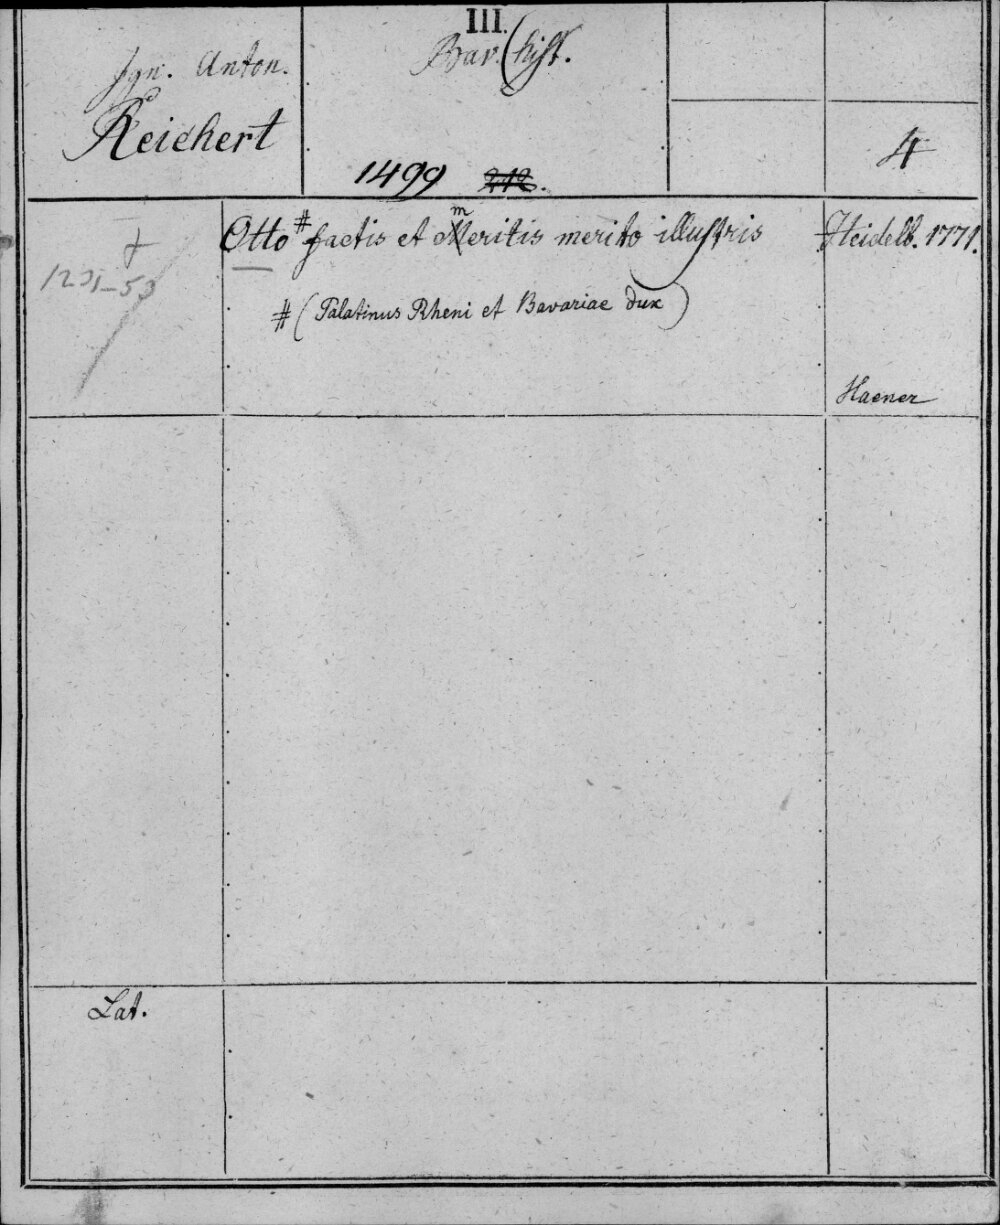 III.
Ign. Anton.
Bav. hist.
Reichert
4
1499 212.
Otto # factis et meritis merito illustris
Heidelb. 1771.
1231-53
# (Palatinus Rheni et Bavariae dux)
Haener
Lat.